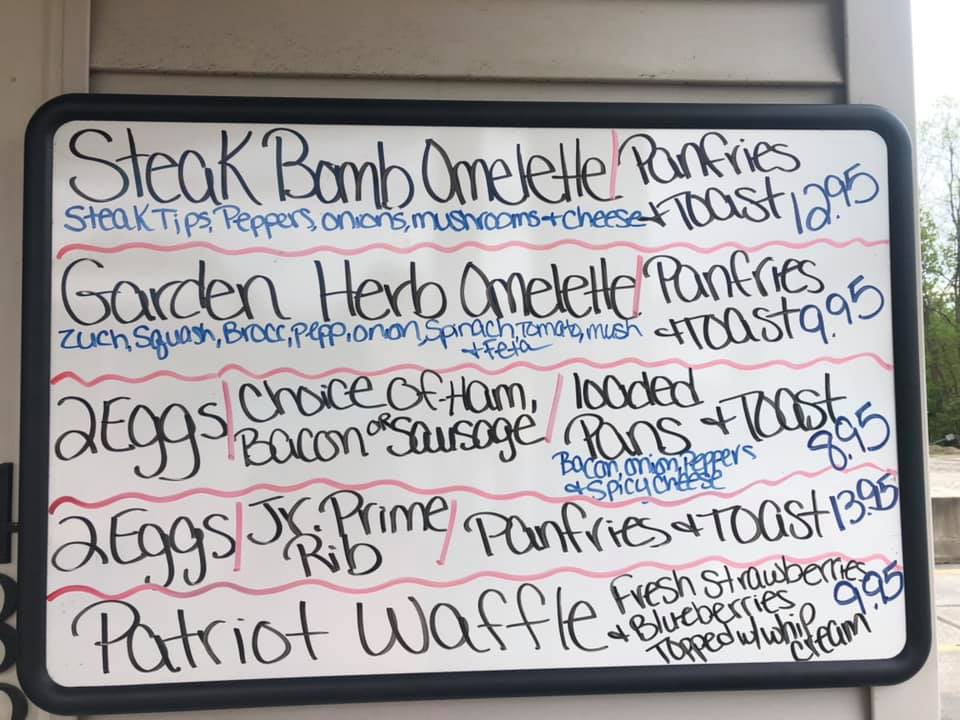 Steak Bomb Omelette / Panfries
Steak Tips, Peppers, onions, mushrooms + cheese + Toast 12.95
Garden Herb Omelette / Panfries
Zuch, Squash, Brocc, pepp, onion, Spinach, Tomato, mush + Toast 9.95
+ Feta
2 Eggs / Choice of Ham, / loaded
Bacon or Sausage Pans + Toast
Bacon, onion, Peppers 8.95
+ Spicy cheese
2 Eggs / Jr. Prime / Panfries + Toast 13.95
Rib
Patriot Waffle Fresh Strawberries 9.95
+ Blueberries
Topped w/ whip
cream